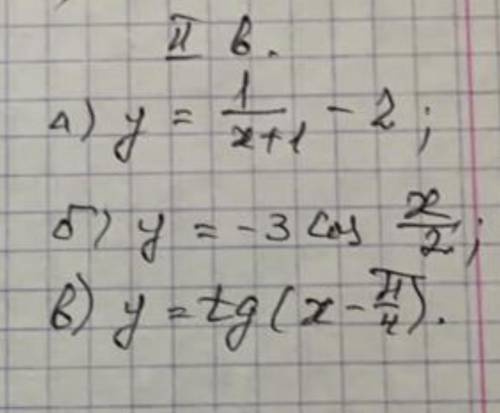 II в.
а) y = 1/(x+1) - 2;
б) y = -3 cos x/2;
в) y = tg(x - π/4).